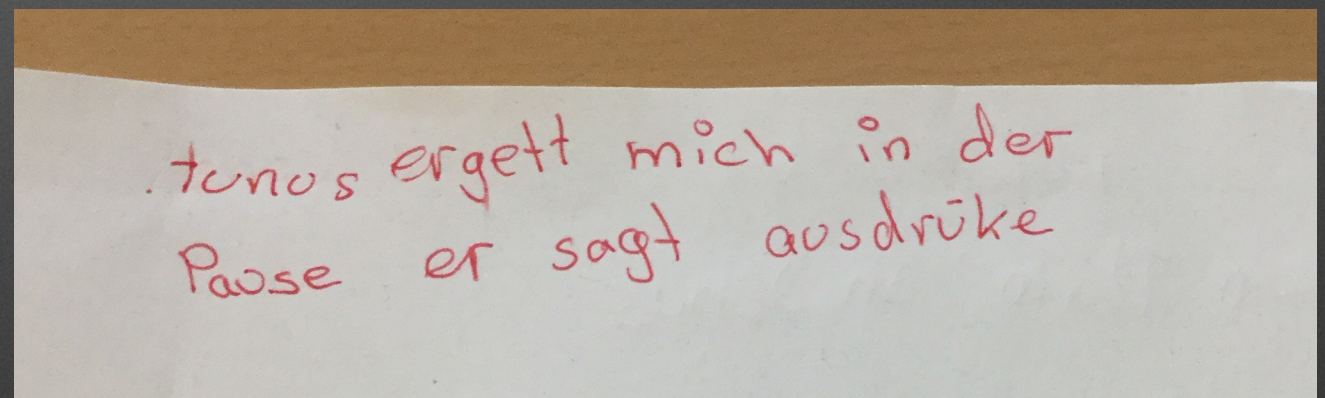 . tunus ergett mich in der
Pause er sagt ausdrüke